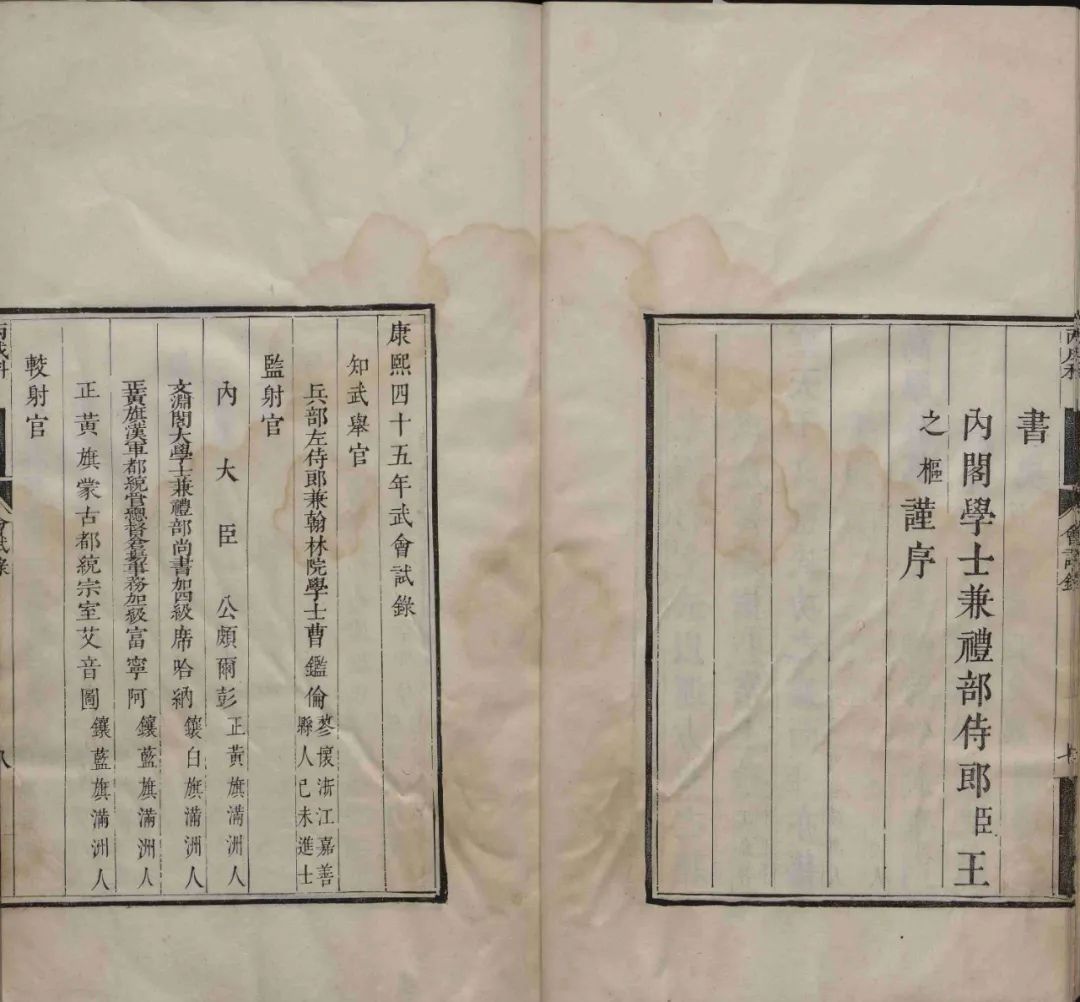 書
內閣學士兼禮部侍郎臣王
之樞謹序
會試錄
康熙四十五年武會試錄
知武舉官
兵部左侍郎兼翰林院學士曹鑑倫蓼懷浙江嘉善
縣人己未進士
監射官
內大臣公頗爾彭正黃旗滿洲人
文淵閣大學士兼禮部尚書加四級席哈納鑲白旗滿洲人
正黃旗漢軍都統管總督倉場事務加級富寧阿鑲藍旗滿洲人
正黃旗蒙古都統宗室艾音圖鑲藍旗滿洲人
較射官
丙戌科
會試錄
八